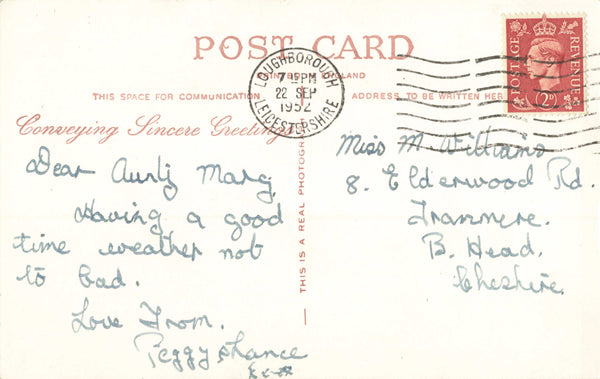 POST CARD
PRINTED ENGLAND
THIS SPACE FOR COMMUNICATION
ADDRESS TO BE WRITTEN HERE
LOUGHBOROUGH
7 PM
22 SEP
1952
LEICESTERSHIRE
POSTAGE
REVENUE
2D
Conveying Sincere Greetings
THIS IS A REAL PHOTOGR
Dear Aunty Marg,
Having a good
time weather not
to bad.
Love From.
Peggy & Lance
Miss M. Williams
8. Elderwood Rd.
Tranmere.
B. Head.
Cheshire.